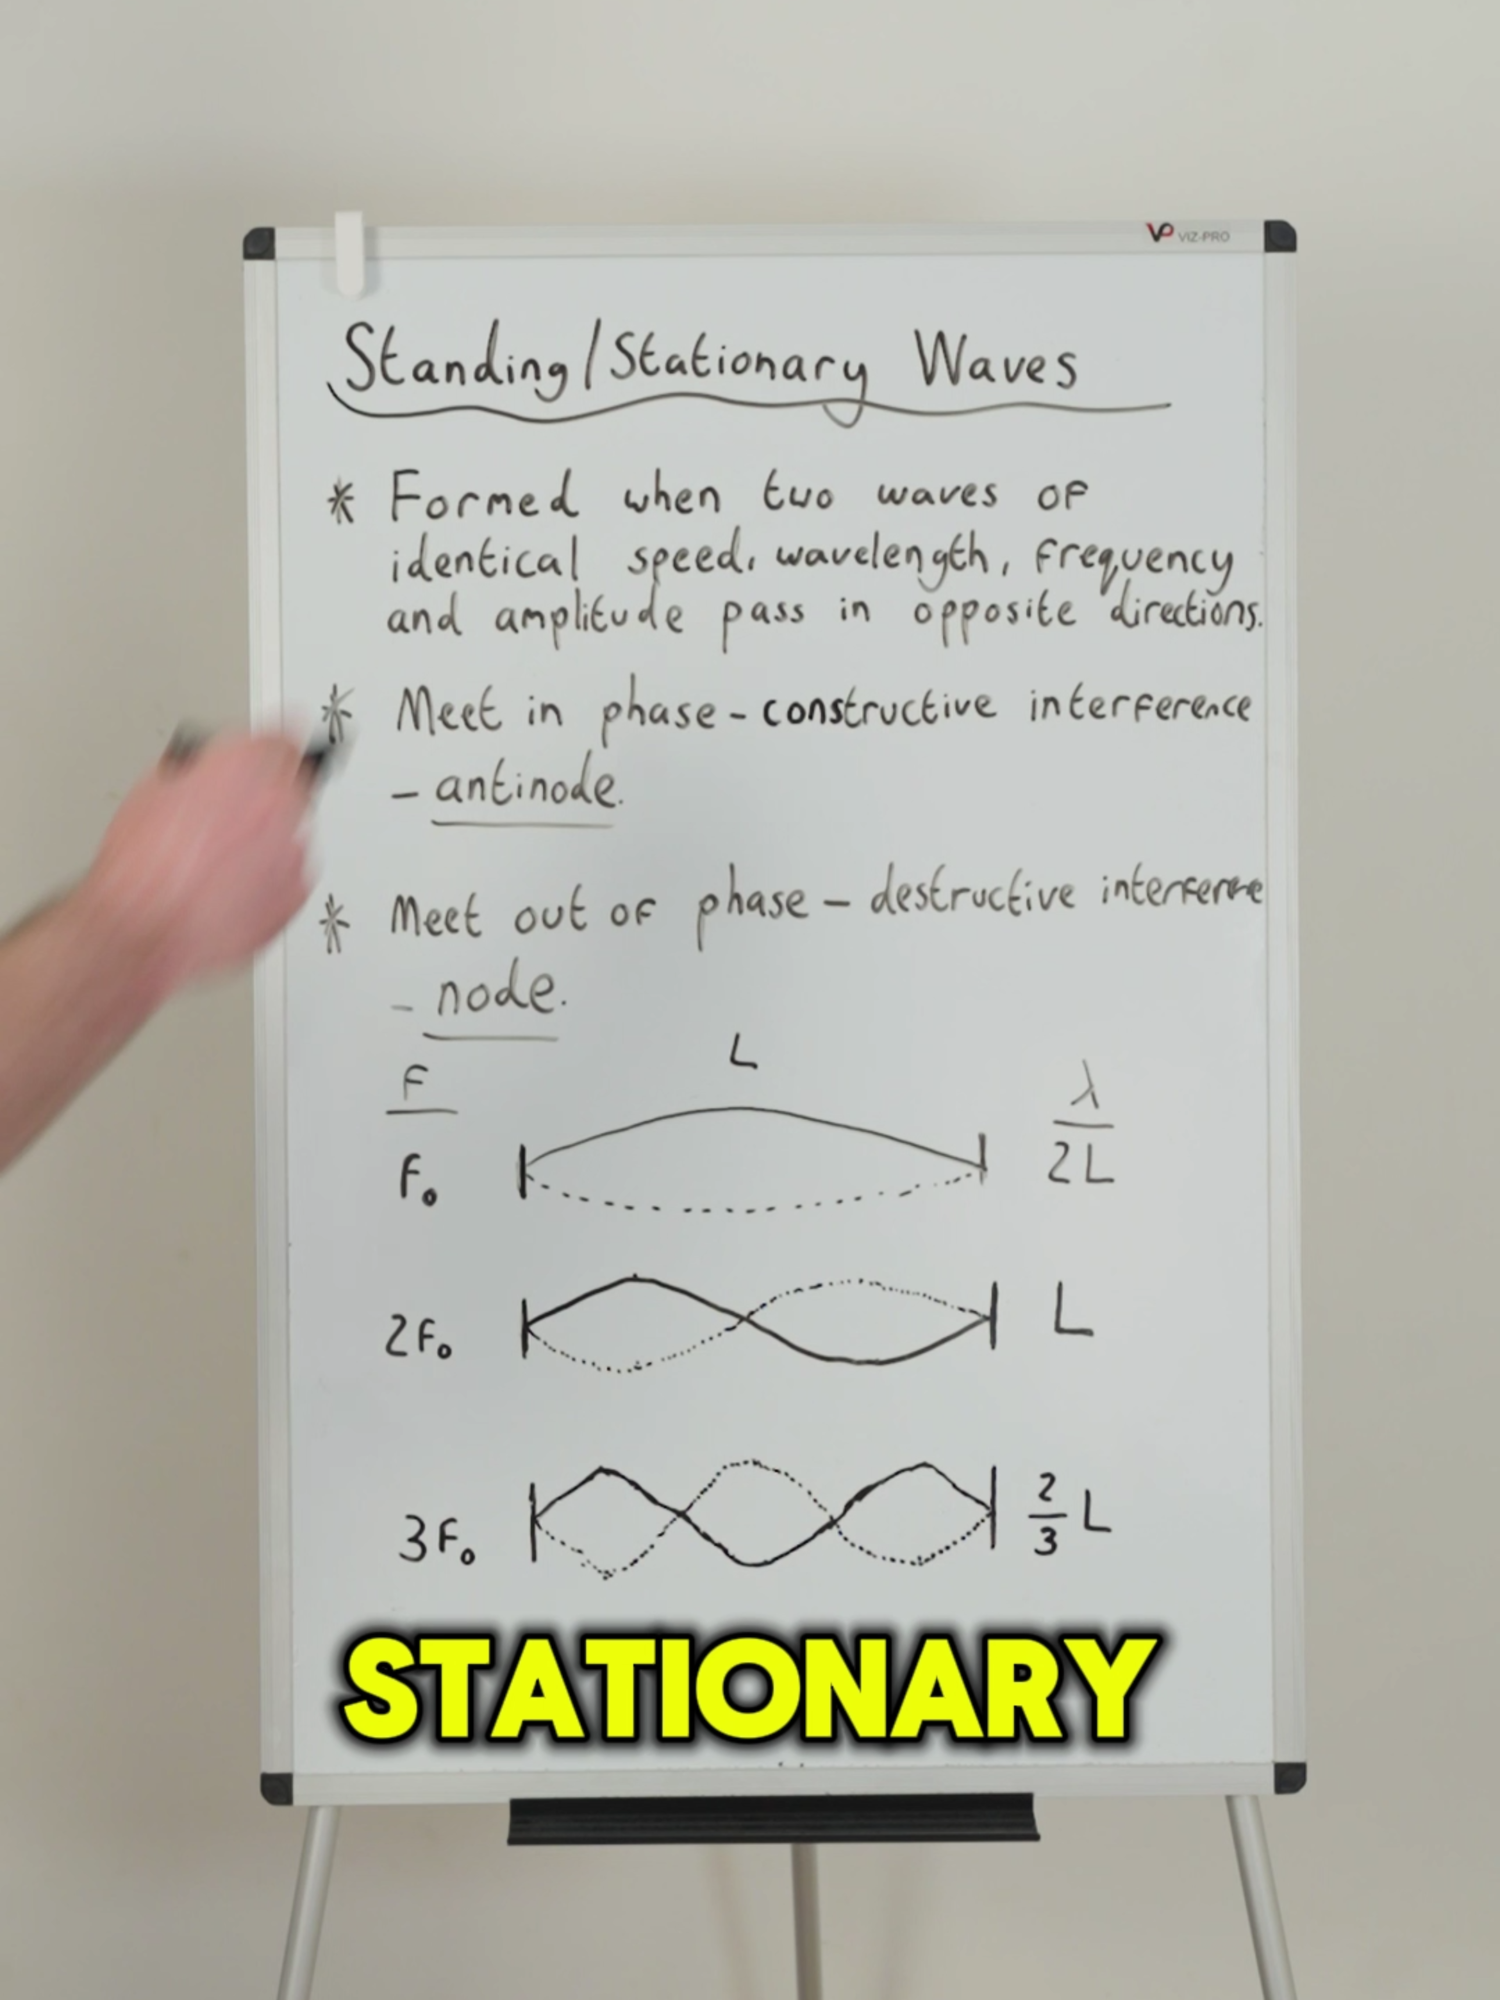 VP VIZ-PRO
Standing/Stationary Waves
* Formed when two waves of
identical speed, wavelength, frequency
and amplitude pass in opposite directions.
* Meet in phase - constructive interference
- antinode.
* Meet out of phase - destructive interference
- node.
F L λ
F₀ 2L
2F₀ L
3F₀ 2/3 L
STATIONARY